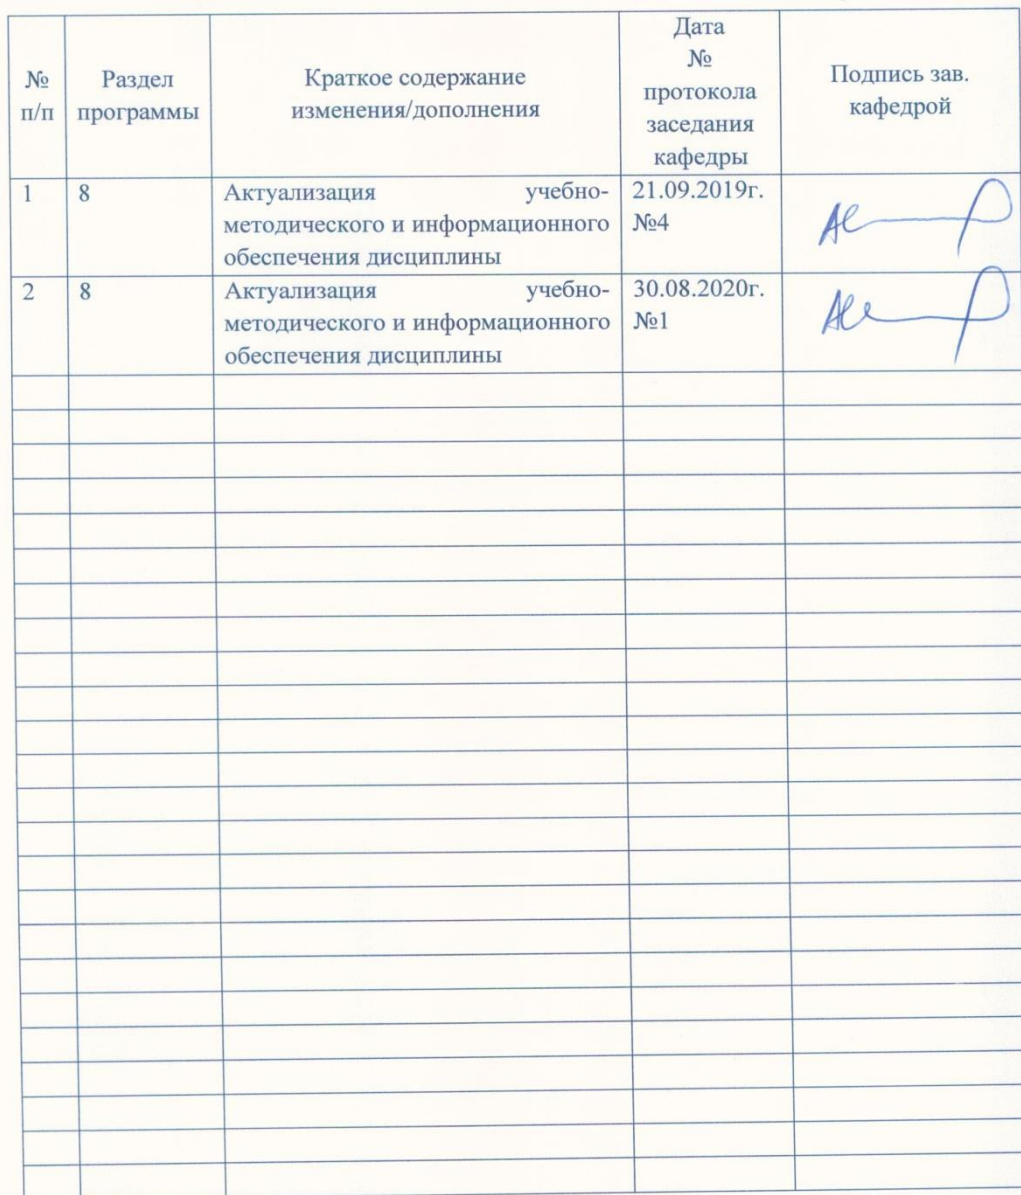 № п/п
Раздел программы
Краткое содержание
изменения/дополнения
Дата
№
протокола
заседания
кафедры
Подпись зав.
кафедрой
1
8
Актуализация учебно-
методического и информационного
обеспечения дисциплины
21.09.2019г.
№4
2
8
Актуализация учебно-
методического и информационного
обеспечения дисциплины
30.08.2020г.
№1